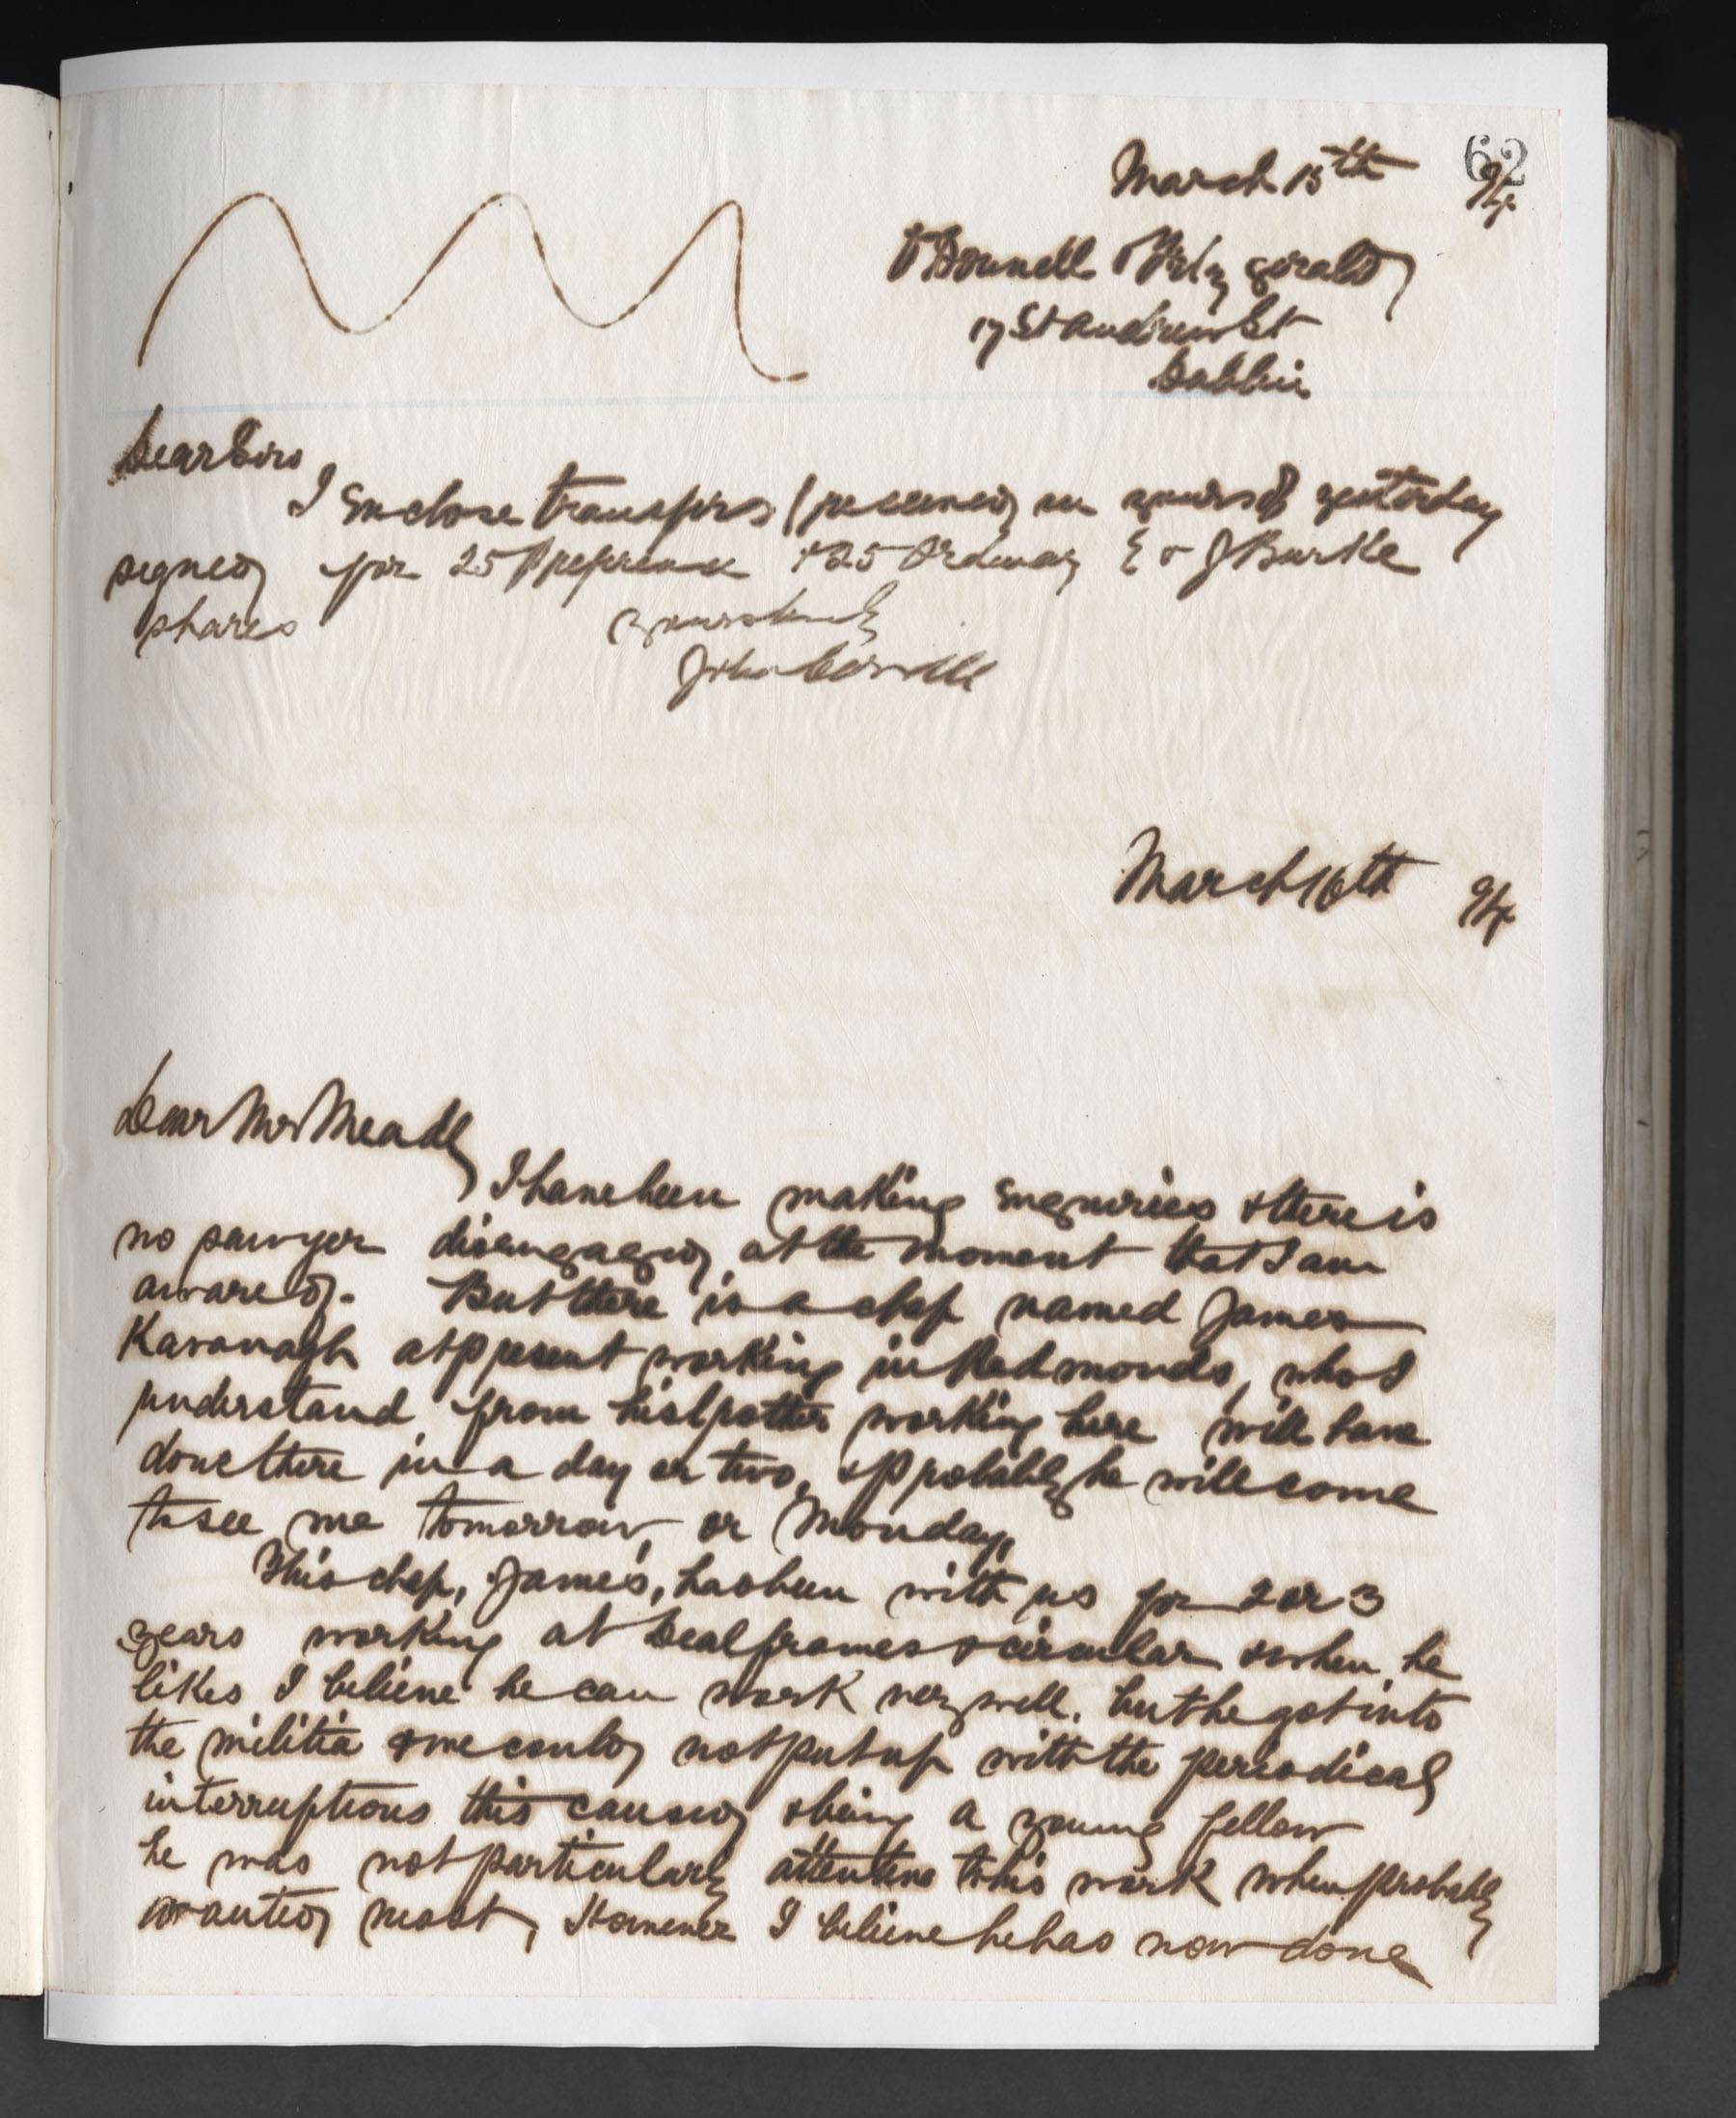 62
March 15th 94
O'Donnell & Fitzgerald
17 St Andrew St
Dublin
Dear Sirs
I Enclose transfers (received in yours of yesterday
signed for 25 Preference & 25 Ordinary E & J Burke
shares
Yours truly
John Carroll
March 16th 94
Dear Mr Meade
I have been making Enquiries & there is
no sawyer disengaged at the moment that I am
aware of. But there is a chap named James
Kavanagh at present working in Redmonds, who I
understand from his father working here will have
done there in a day or two, & probably he will come
to see me tomorrow or Monday,
This chap, James, has been with us for 2 or 3
years working at Deal frames & circular & when he
likes I believe he can work very well. but he got into
the militia & we could not put up with the periodical
interruptions this caused & being a young fellow
he was not particularly attentive to his work when probably
wanted most, However I believe he has now done